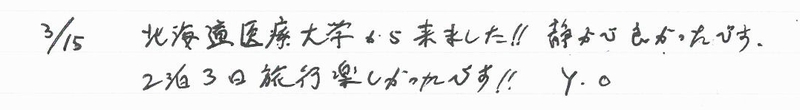 3/15 北海道医療大学から来ました!! 静かで良かったです.
2泊3日旅行楽しかったです!! Y.O